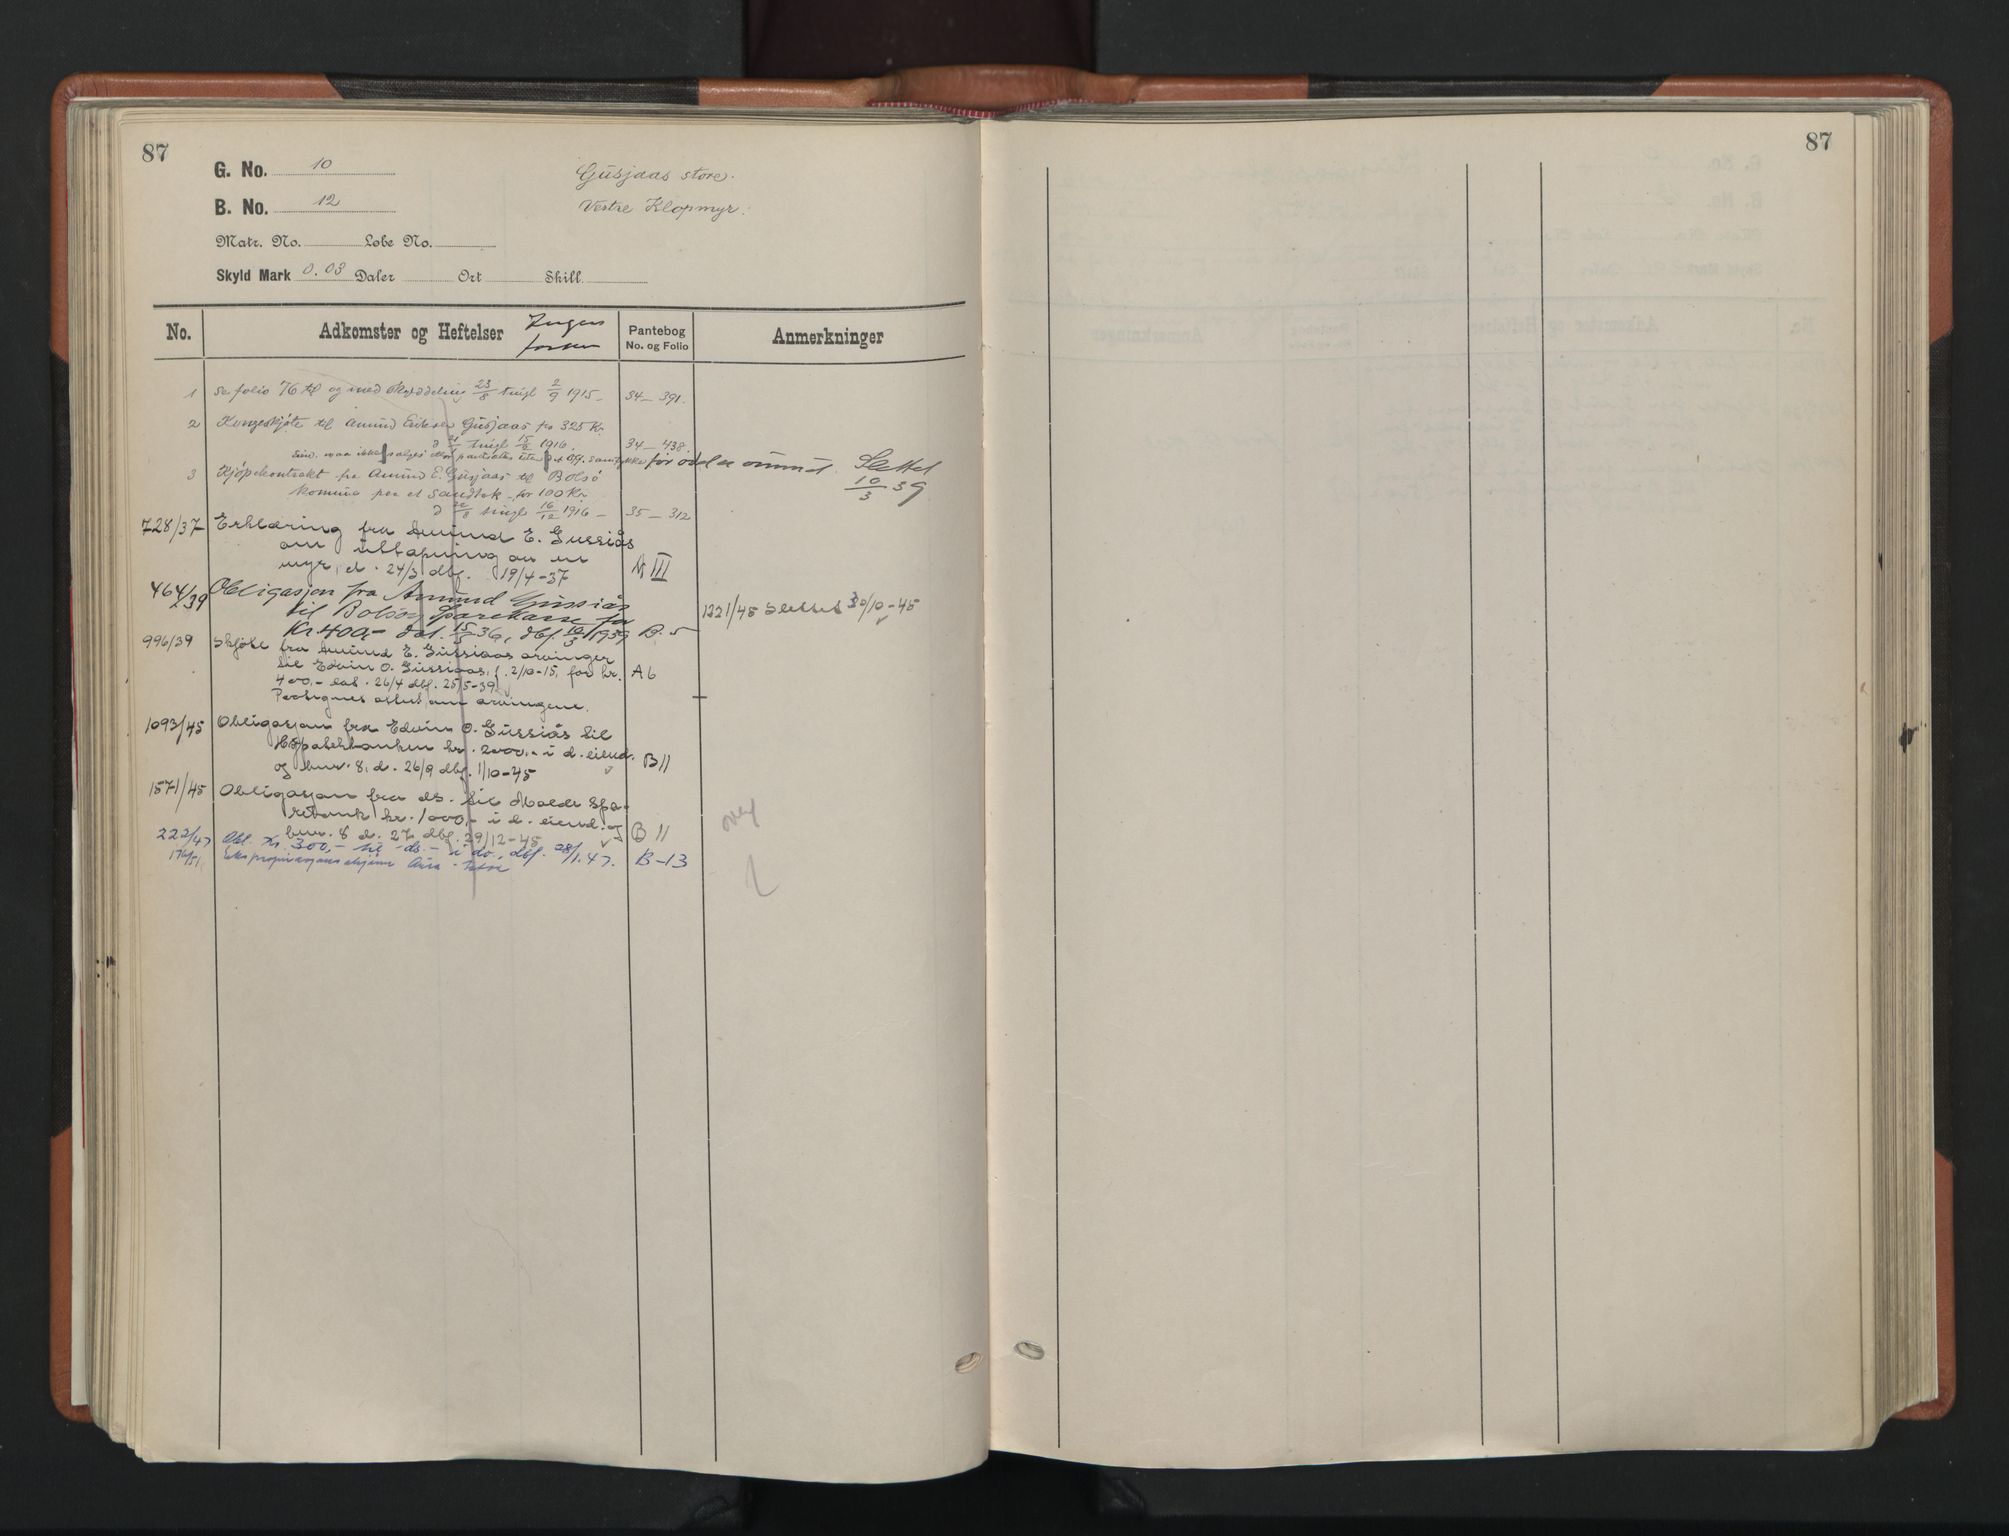 87
G. No. 10
Gusjaas store.
B. No. 12
Vestre Klopmyr.
Matr. No. Løbe No.
Skyld Mark 0.03 Daler Ort Skill.
No. Adkomster og Heftelser Pantebog No. og Folio Anmerkninger
1 Se folio 76 til og med Skylddeling 23/8 tingl 2/9 1915 – 34 – 391.
2 Kongeskjøte til Amund Eriksen Gusjaas for 325 Kr.
tingl 15/2 1916. 34 – 438.
3 Kjøpekontrakt fra Amund E. Gusjaas til Bolsø Slettet
komune paa et Sandtak for 100 Kr. 10/3 39
tingl 16/12 1916 – 35 – 312
728/37 Erklæring fra Amund E. Gussiås
om uttapning av en
myr, d. 24/3 dbf. 19/4-37 III
464/39 Obligasjon fra Amund Gussiås
til Bolsøy Sparekasse for 1221/45 Slettet 30/10-45
Kr 400,- dat. 15/5 36, dbf. 10/3 1939 B. 5
996/39 Skjøte fra Amund E. Gussiaas arvinger
til Edvin O. Gussiaas, f. 2/10-15, for kr. A 6
400,- dat. 26/4 dbf. 25/5-39
om arvingene.
1093/45 Obligasjon fra Edvin O. Gussiås til
Hypotekbanken kr. 2000,- i d. eiend.
og bnr. 8, d. 26/9 dbf. 1/10-45 B 11
1571/45 Obligasjon fra ds. til Molde Spa-
rebank kr. 1000,- i d. eiend. og
bnr. 8 d. 27 dbf. 29/12-45 B 11
222/47 Obl. kr. 300,- til ds. i do., dbf. 28/1.47. B-13
Ekspropriasjonsskjønn Aura
87